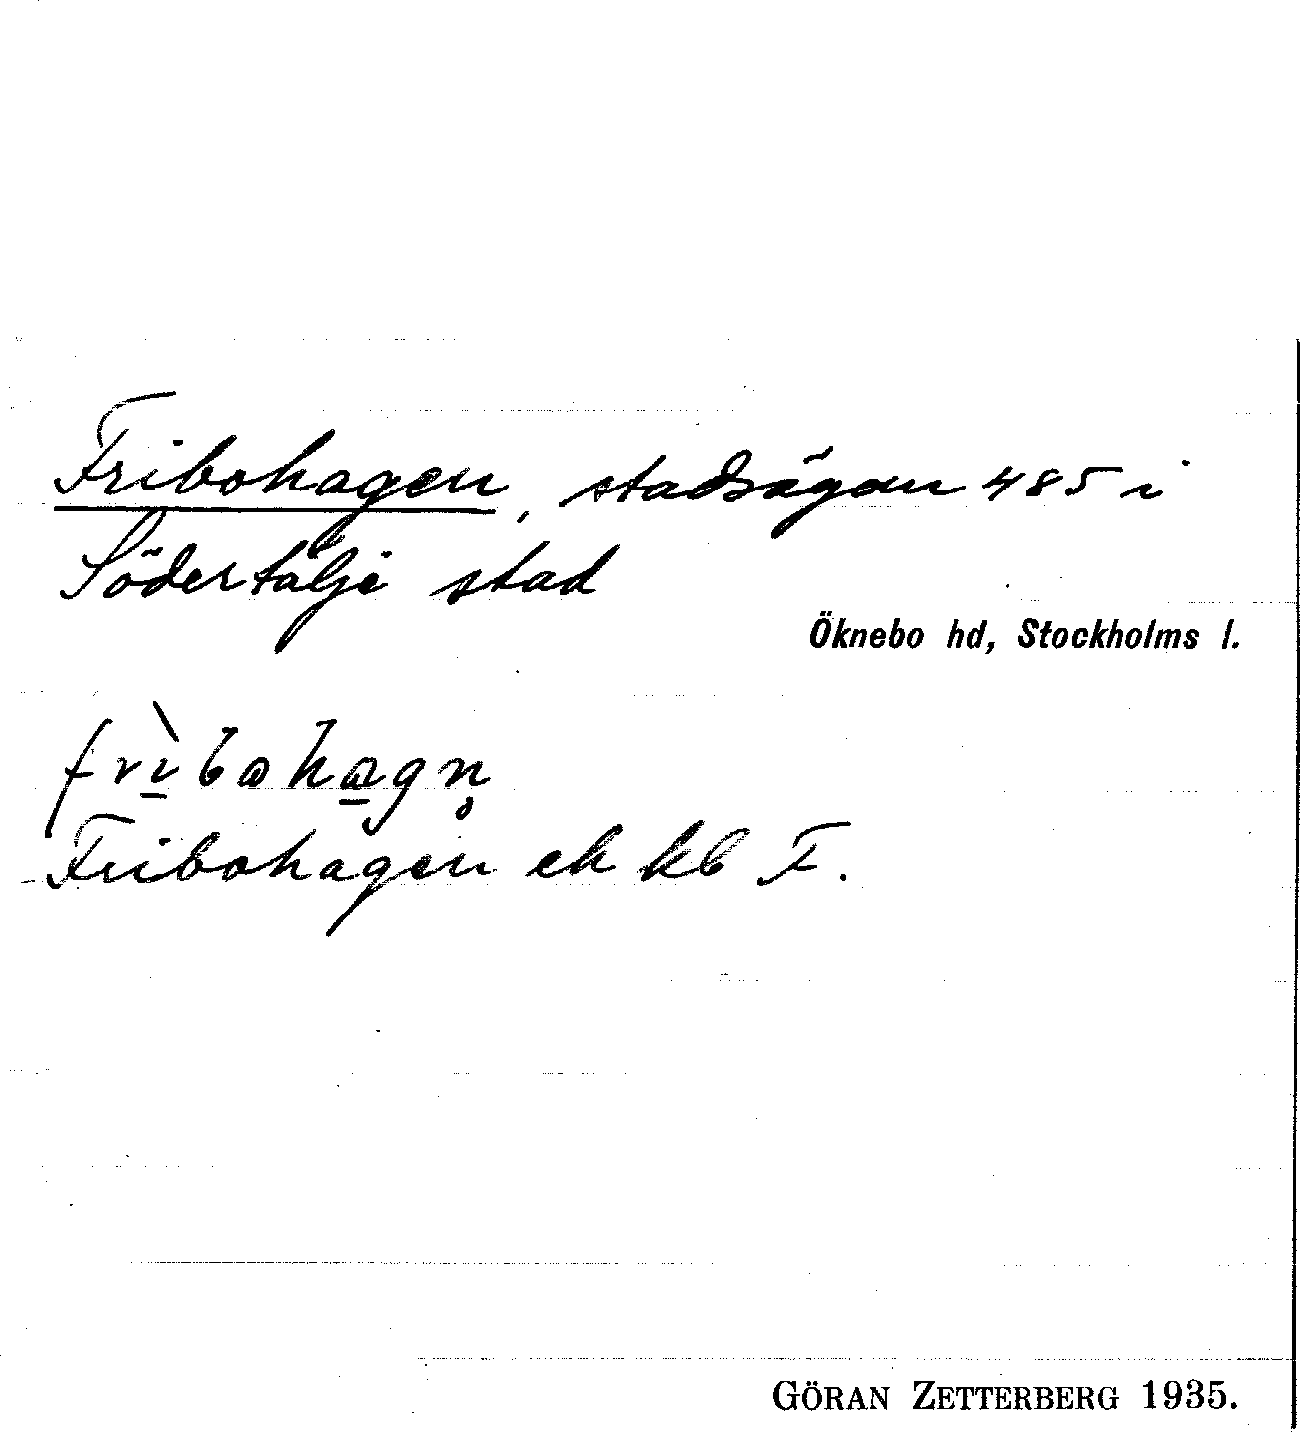 Fribohagen, stadsägan 485 i
Södertälje stad
Öknebo hd, Stockholms l.
frìbohagn̥
Fribohagen ek kb F.
GÖRAN ZETTERBERG 1935.